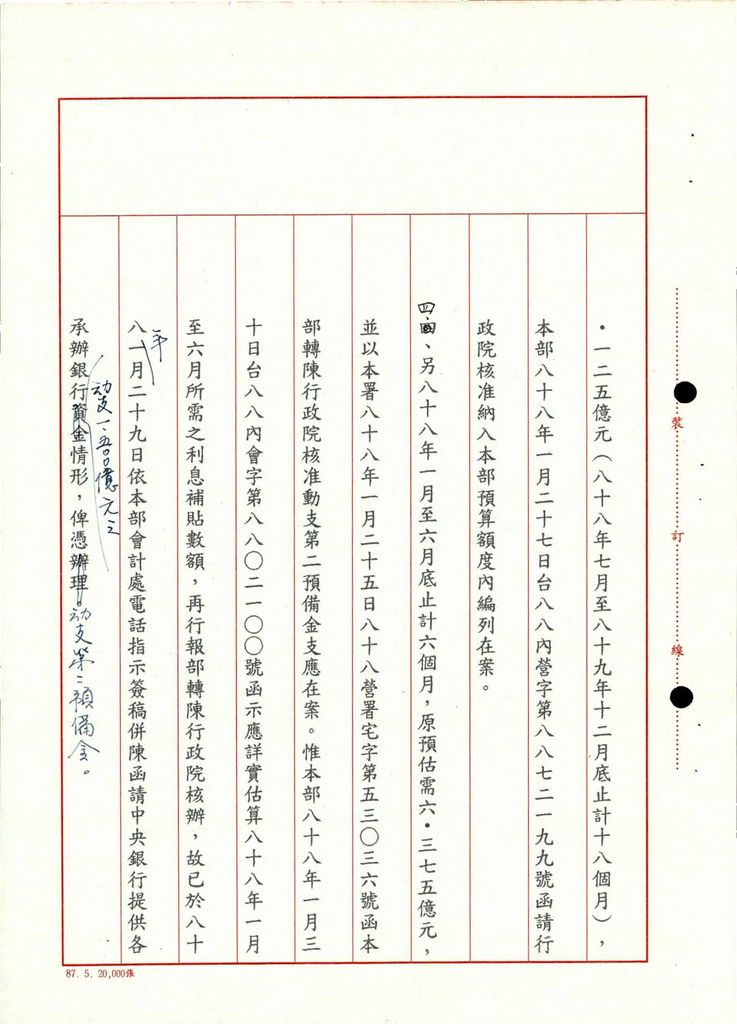 ・一二五億元（八十八年七月至八十九年十二月底止計十八個月），
本部八十八年一月二十七日台八八內營字第八八七二一九九號函請行
政院核准納入本部預算額度內編列在案。
四、另八十八年一月至六月底止計六個月，原預估需六・三七五億元，
並以本署八十八年一月二十五日八十八營署宅字第五三〇三六號函本
部轉陳行政院核准動支第二預備金支應在案。惟本部八十八年一月三
十日台八八內會字第八八〇二一〇〇號函示應詳實估算八十八年一月
至六月所需之利息補貼數額，再行報部轉陳行政院核辦，故已於八十
八年一月二十九日依本部會計處電話指示簽稿併陳函請中央銀行提供各
動支一、五〇〇億元之
承辦銀行資金情形，俾憑辦理動支第二預備金。
裝
訂
線
87. 5. 20,000張